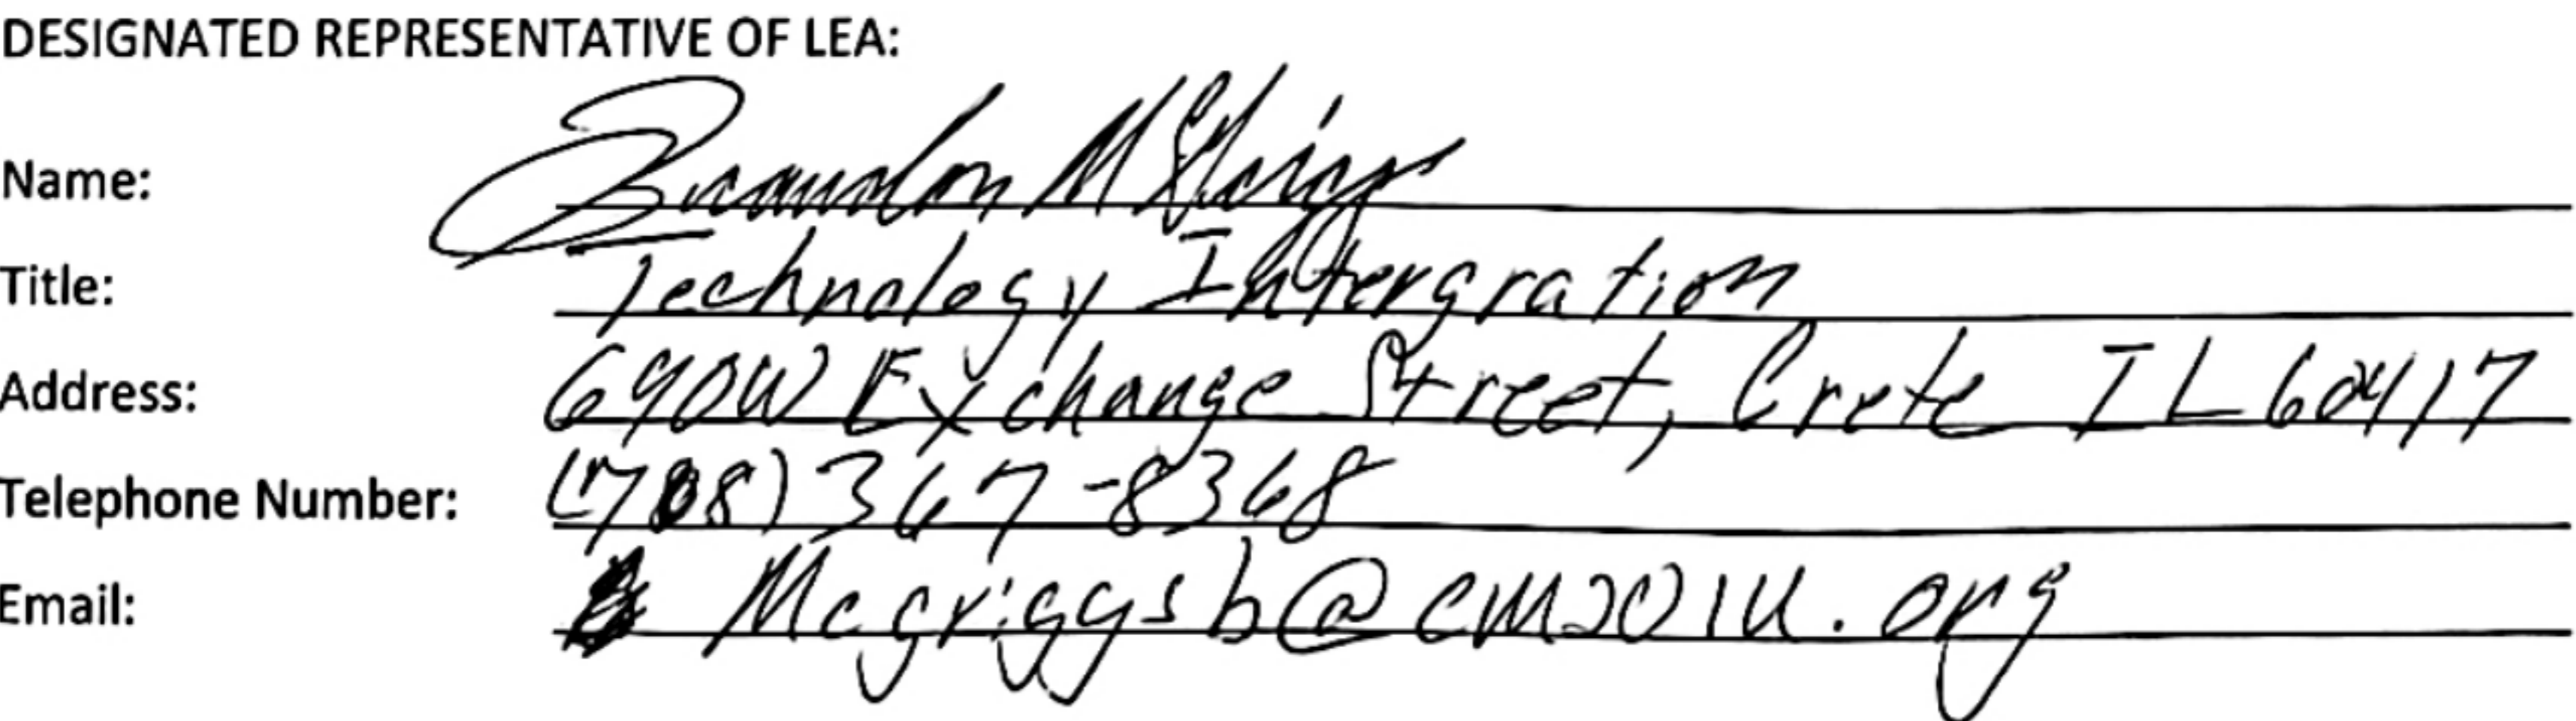 DESIGNATED REPRESENTATIVE OF LEA:
Name: Brandon McGriggs
Title: Technology Intergration
Address: 690W Exchange Street, Crete IL 60417
Telephone Number: (708) 367-8368
Email: Mcgriggsb@cm201u.org